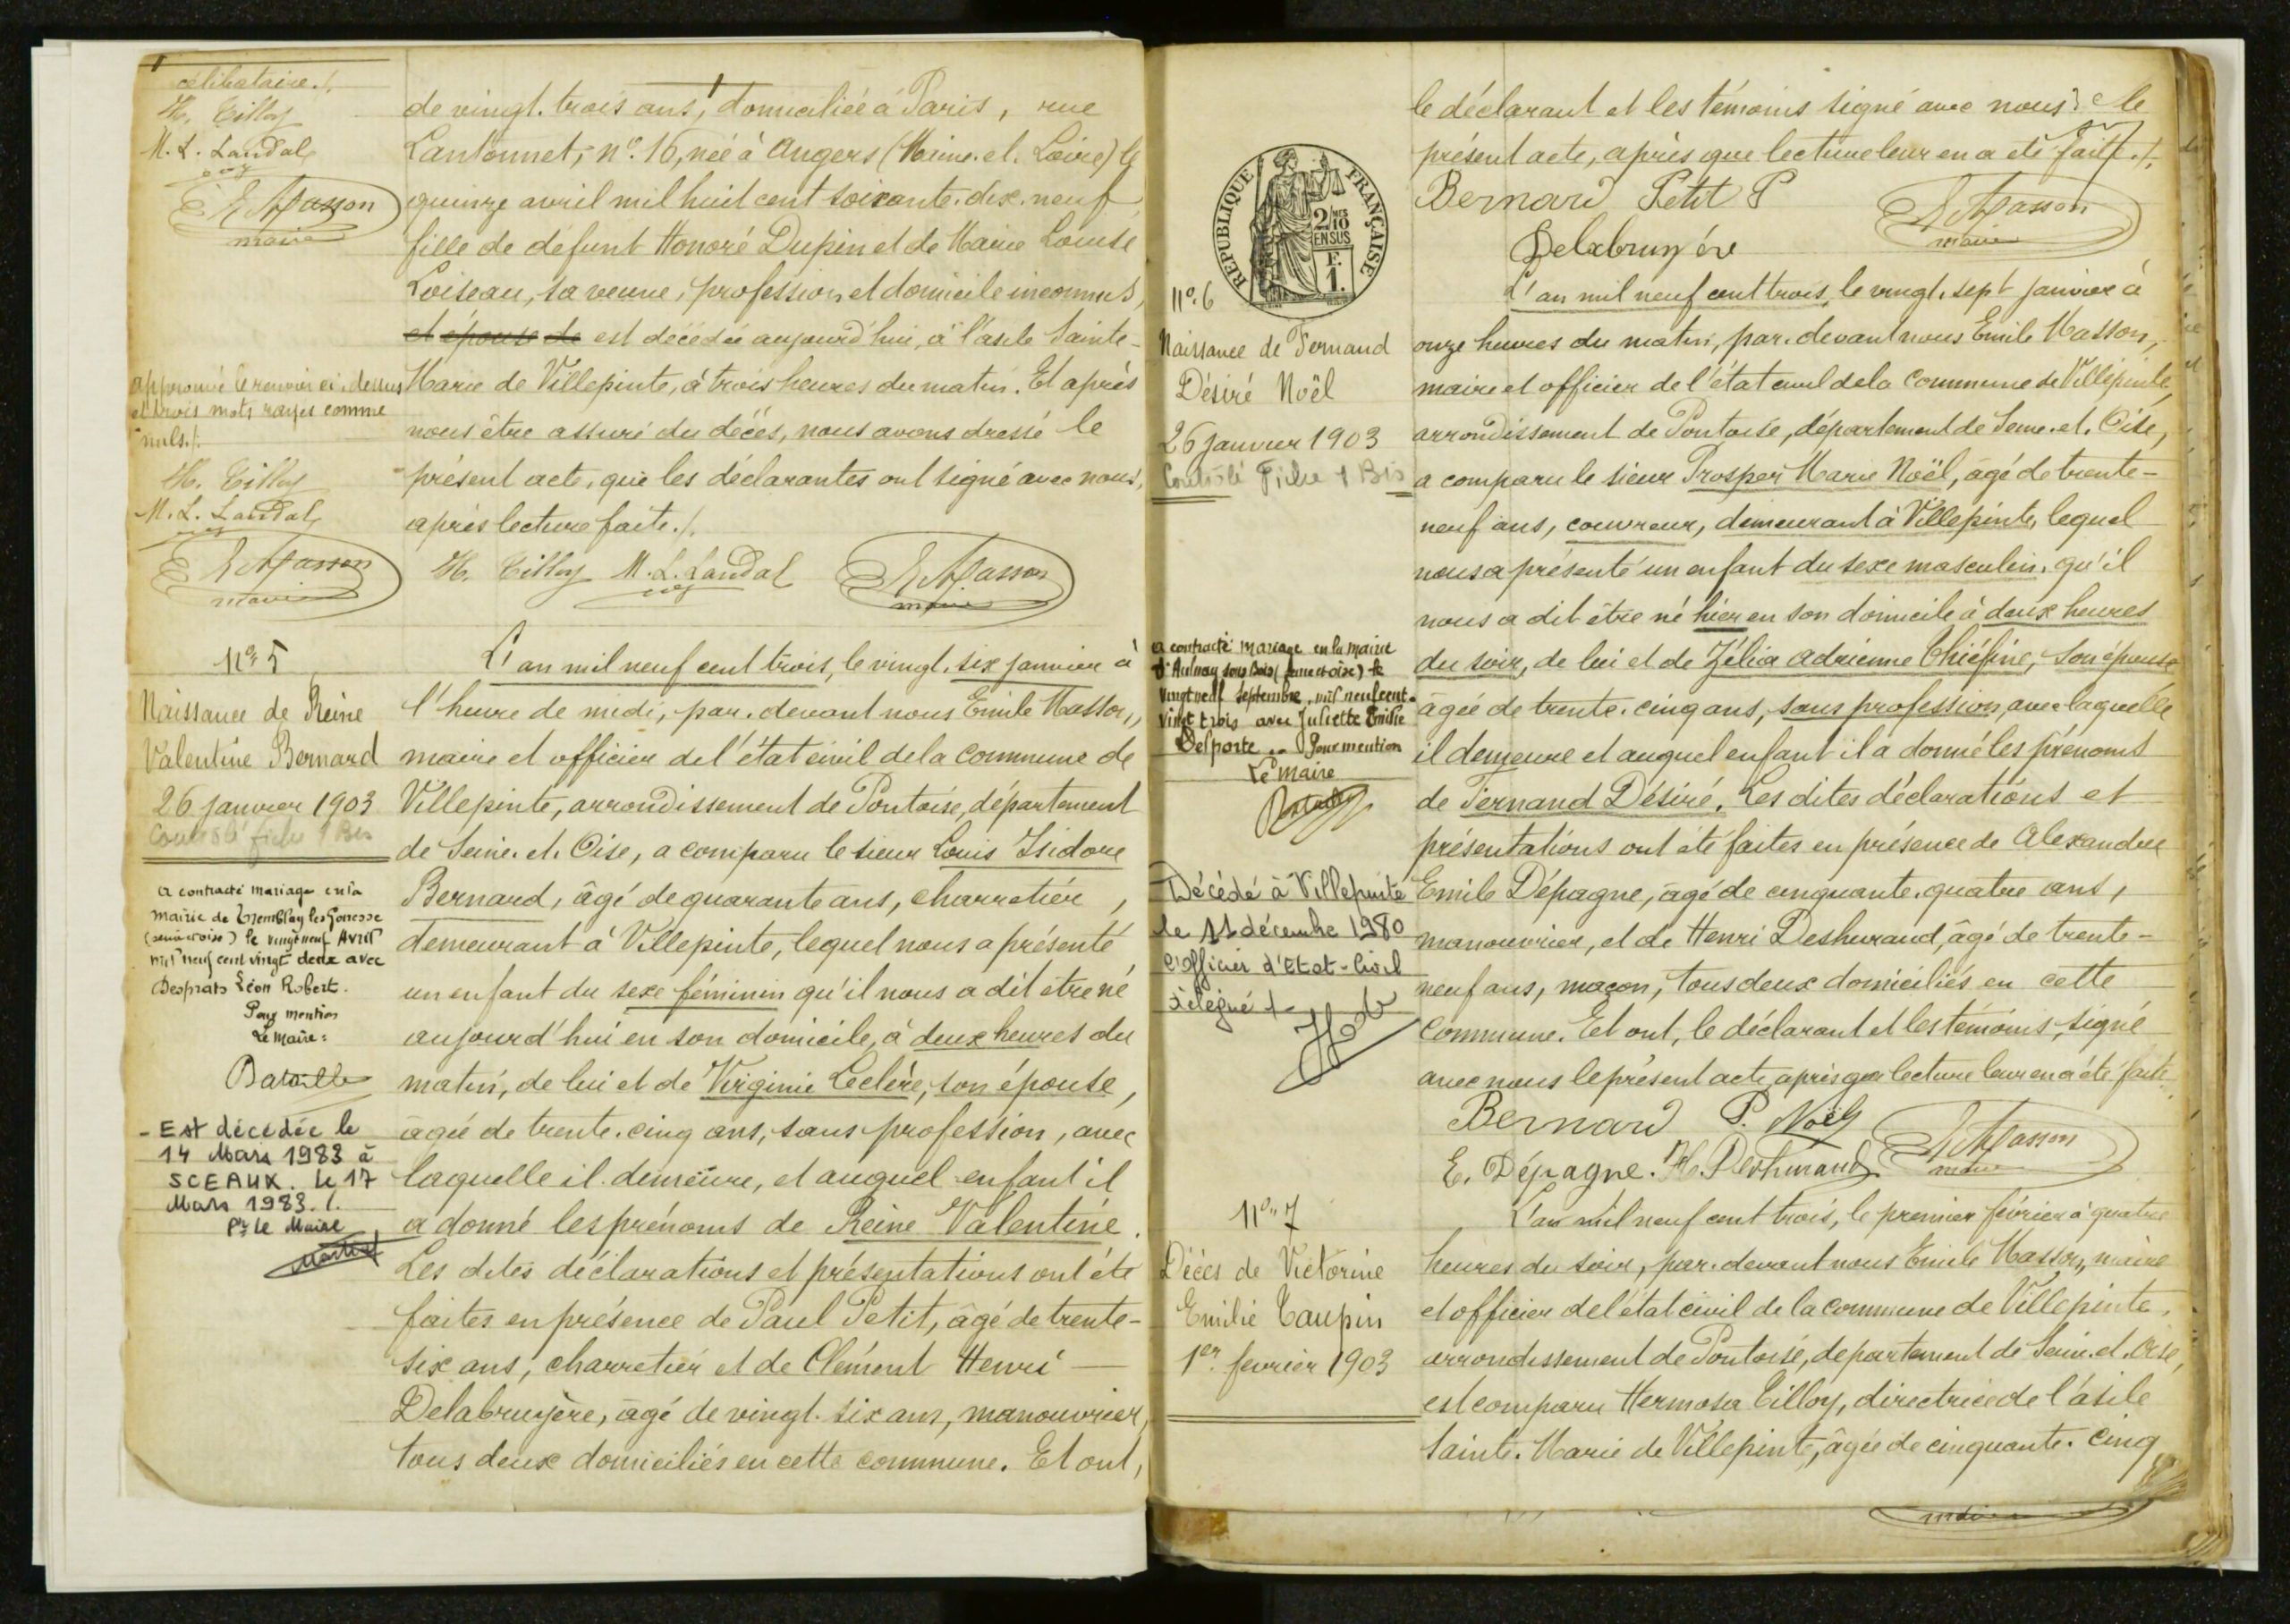 célibataire ./.
H. Tilloy
M. L. Landal
E Masson
maire
de vingt-trois ans, domiciliée à Paris, rue
Lantonnet, nº 16, née à Angers (Maine-et-Loire) le
quinze avril mil huit cent soixante-dix-neuf,
fille de défunt Honoré Dupin et de Marie Louise
Loiseau, sa veuve, profession et domicile inconnus,
et épouse de est décédée aujourd'hui, à l'asile Sainte-
Marie de Villepinte, à trois heures du matin. Et après
nous être assuré du décès, nous avons dressé le
présent acte, que les déclarantes ont signé avec nous,
après lecture faite ./.
approuvé le renvoi ci-dessus
et trois mots rayés comme
nuls ./.
H. Tilloy
M. L. Landal
E Masson
maire
H. Tilloy M. L. Landal E Masson
maire
Nº 5
Naissance de Reine
Valentine Bernard
26 janvier 1903
Contrôlé fiche 1 Bis
a contracté mariage en la
mairie de Tremblay les Gonesse
(seine et oise) le vingt neuf Avril
mil neuf cent vingt deux avec
Desprats Léon Robert.
Pour mention
Le Maire :
Bataille
- Est décédée le
14 Mars 1983 à
SCEAUX. Le 17
Mars 1983. /.
Pr le Maire
L'an mil neuf cent trois, le vingt-six janvier à
l'heure de midi, par-devant nous Emile Masson,
maire et officier de l'état civil de la commune de
Villepinte, arrondissement de Pontoise, département
de Seine-et-Oise, a comparu le sieur Louis Isidore
Bernard, âgé de quarante ans, charretier,
demeurant à Villepinte, lequel nous a présenté
un enfant du sexe féminin qu'il nous a dit être né
aujourd'hui en son domicile, à deux heures du
matin, de lui et de Virginie Leclère, son épouse,
âgée de trente-cinq ans, sans profession, avec
laquelle il demeure, et auquel enfant il
a donné les prénoms de Reine Valentine.
Les dites déclarations et présentations ont été
faites en présence de Paul Petit, âgé de trente-
six ans, charretier et de Clément Henri
Delabruyère, âgé de vingt-six ans, manouvrier,
tous deux domiciliés en cette commune. Et ont,
le déclarant et les témoins signé avec nous le
présent acte, après que lecture leur en a été faite ./.
Bernard Petit P E Masson
maire
Delabruyère
REPUBLIQUE FRANÇAISE
2/10 EN SUS
F.
1.
Nº 6
Naissance de Fernand
Désiré Noël
26 janvier 1903
Contrôlé Fiche 1 Bis
a contracté mariage en la mairie
d'Aulnay sous Bois (seine et oise) le
vingt neuf septembre mil neuf cent
vingt trois avec Juliette Emilie
Delporte .. Pour mention
Le Maire
Décédé à Villepinte
le 11 décembre 1980
L'officier d'Etat-Civil
délégué
L'an mil neuf cent trois, le vingt-sept janvier à
onze heures du matin, par-devant nous Emile Masson,
maire et officier de l'état civil de la commune de Villepinte,
arrondissement de Pontoise, département de Seine-et-Oise,
a comparu le sieur Prosper Marie Noël, âgé de trente-
neuf ans, couvreur, demeurant à Villepinte, lequel
nous a présenté un enfant du sexe masculin, qu'il
nous a dit être né hier en son domicile à deux heures
du soir, de lui et de Zélia Adrienne Thiéfine, son épouse
âgée de trente-cinq ans, sans profession, avec laquelle
il demeure et auquel enfant il a donné les prénoms
de Fernand Désiré. Les dites déclarations et
présentations ont été faites en présence de Alexandre
Emile Dépagne, âgé de cinquante-quatre ans,
manouvrier, et de Henri Deshurand, âgé de trente-
neuf ans, maçon, tous deux domiciliés en cette
commune. Et ont, le déclarant et les témoins, signé
avec nous le présent acte, après que lecture leur en a été faite
Bernard P. Noël E Masson
maire
E. Dépagne. H. Deshurand
Nº 7
Décès de Victorine
Emilie Taupin
1er février 1903
L'an mil neuf cent trois, le premier février à quatre
heures du soir, par-devant nous Emile Masson, maire
et officier de l'état civil de la commune de Villepinte,
arrondissement de Pontoise, département de Seine-et-Oise,
est comparu Hermosa Tilloy, directrice de l'asile
Sainte-Marie de Villepinte, âgée de cinquante-cinq
maire